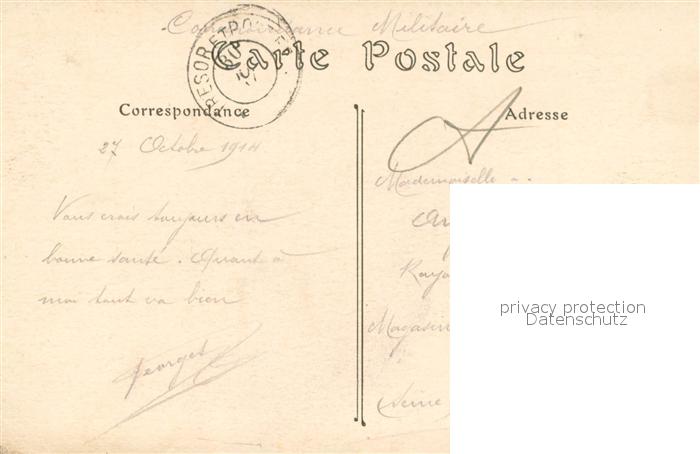 Correspondance Militaire
TRESOR ET POSTES
Carte Postale
Correspondance
Adresse
27 Octobre 1914
Vous crois toujours en
bonne santé. Quant à
moi tout va bien
Georges
Mademoiselle
Magasin
Seine
privacy protection
Datenschutz